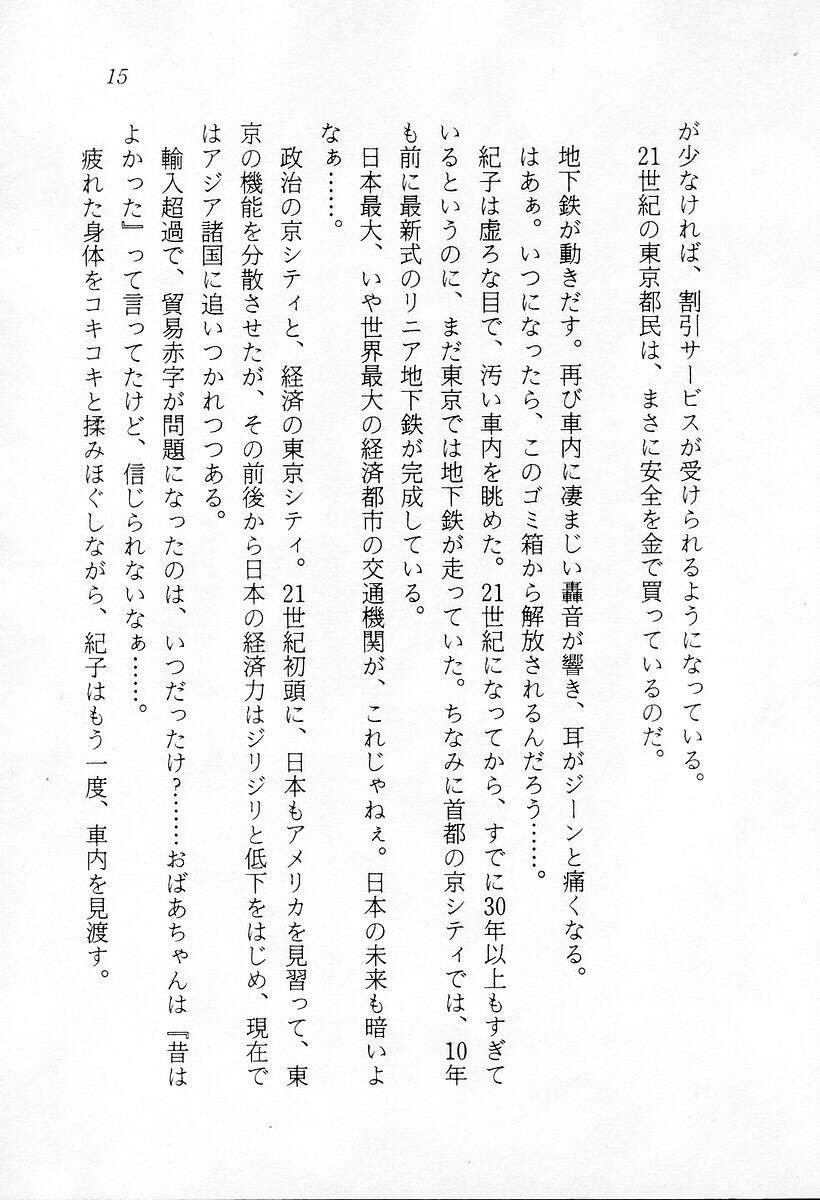 15
が少なければ、割引サービスが受けられるようになっている。
21世紀の東京都民は、まさに安全を金で買っているのだ。
地下鉄が動きだす。再び車内に凄まじい轟音が響き、耳がジーンと痛くなる。
はあぁ。いつになったら、このゴミ箱から解放されるんだろう……。
紀子は虚ろな目で、汚い車内を眺めた。21世紀になってから、すでに30年以上もすぎて
いるというのに、まだ東京では地下鉄が走っていた。ちなみに首都の京シティでは、10年
も前に最新式のリニア地下鉄が完成している。
日本最大、いや世界最大の経済都市の交通機関が、これじゃねぇ。日本の未来も暗いよ
なぁ……。
政治の京シティと、経済の東京シティ。21世紀初頭に、日本もアメリカを見習って、東
京の機能を分散させたが、その前後から日本の経済力はジリジリと低下をはじめ、現在で
はアジア諸国に追いつかれつつある。
輸入超過で、貿易赤字が問題になったのは、いつだったけ?………おばあちゃんは『昔は
よかった』って言ってたけど、信じられないなぁ……。
疲れた身体をコキコキと揉みほぐしながら、紀子はもう一度、車内を見渡す。